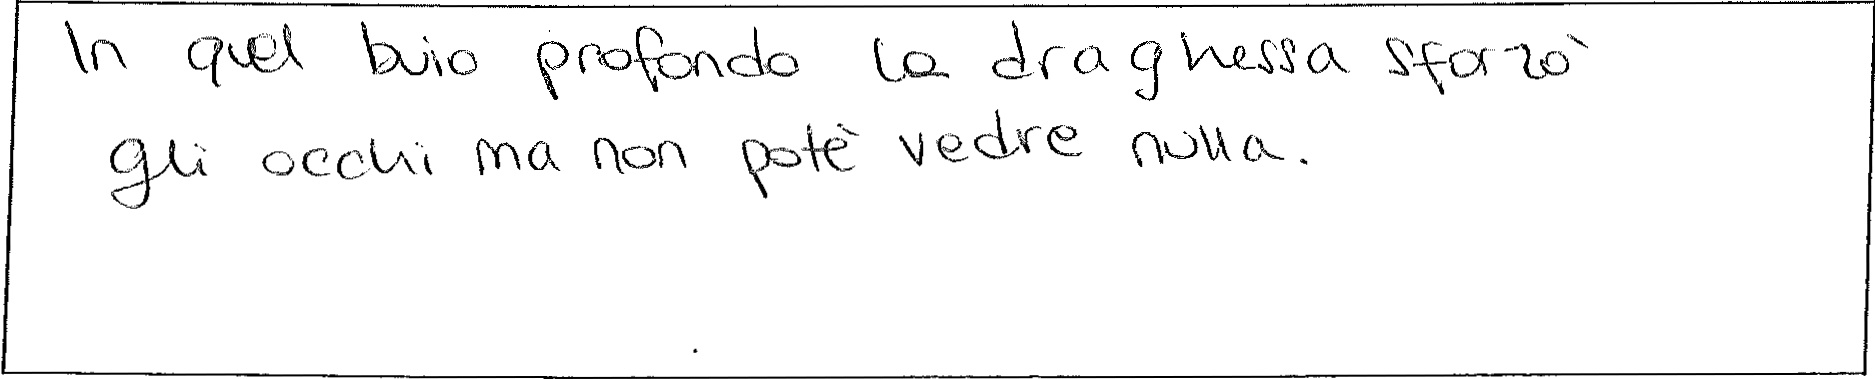 In quel buio profondo la draghessa sforzò
gli occhi ma non potè vedre nulla.